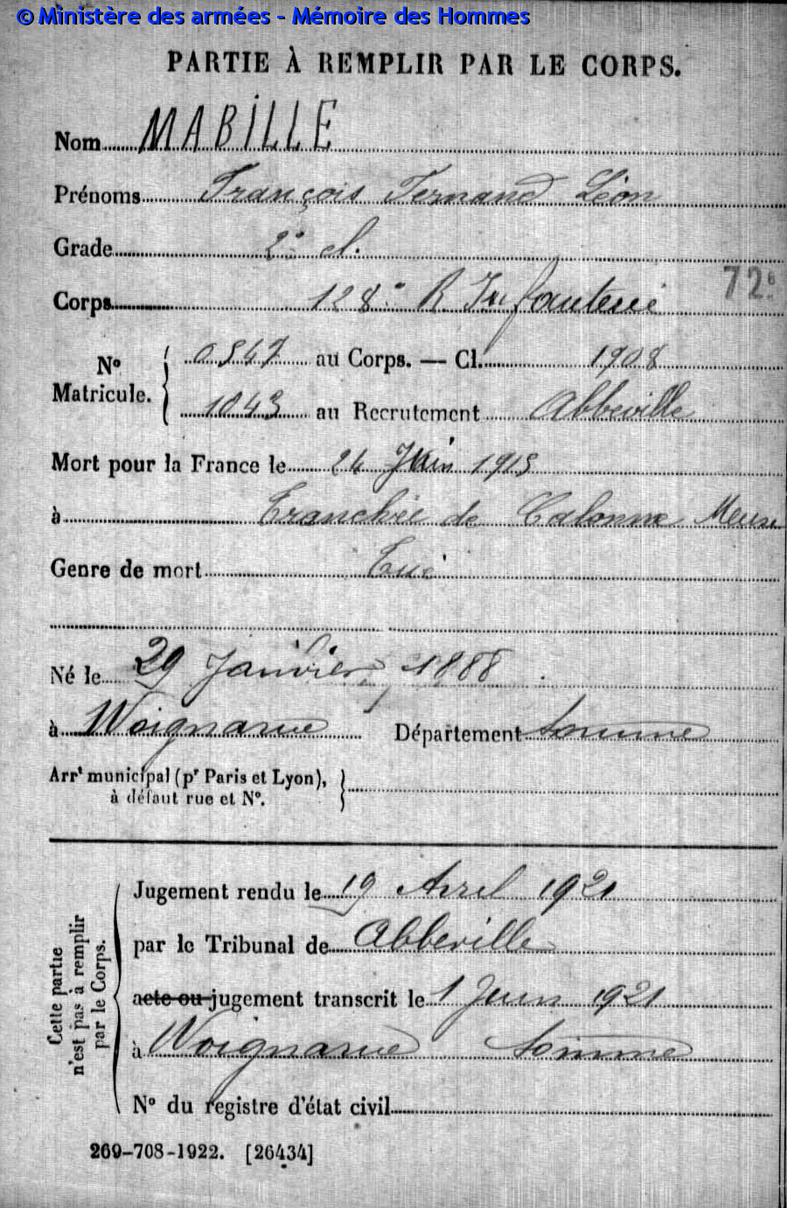 © Ministère des armées - Mémoire des Hommes
PARTIE À REMPLIR PAR LE CORPS.
Nom MABILLE
Prénoms François Fernand Léon
Grade 2e cl.
Corps 128e R Infanterie 72e
No Matricule. 0547 au Corps. — Cl. 1908
1043 au Recrutement Abbeville
Mort pour la France le 24 Juin 1915
à Tranchée de Calonne Meuse
Genre de mort Tué
Né le 29 Janvier 1888
à Woignarue Département Somme
Arrt municipal (pr Paris et Lyon),
à défaut rue et No.
Cette partie
n'est pas à remplir
par le Corps.
Jugement rendu le 19 Avril 1921
par le Tribunal de Abbeville
acte ou jugement transcrit le 1 Juin 1921
à Woignarue Somme
No du registre d'état civil
269-708-1922. [26434]